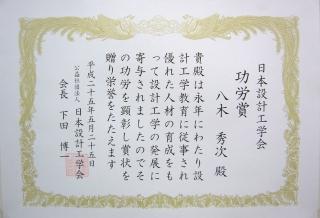 日本設計工学会
功労賞
八木 秀次 殿
貴殿は永年にわたり設
計工学教育に従事され
優れた人材の育成をも
って設計工学の発展に
寄与されましたのでそ
の功労を顕彰し賞状を
贈り栄誉をたたえます
平成二十五年五月二十五日
公益社団法人 日本設計工学会
会長 下田 博一